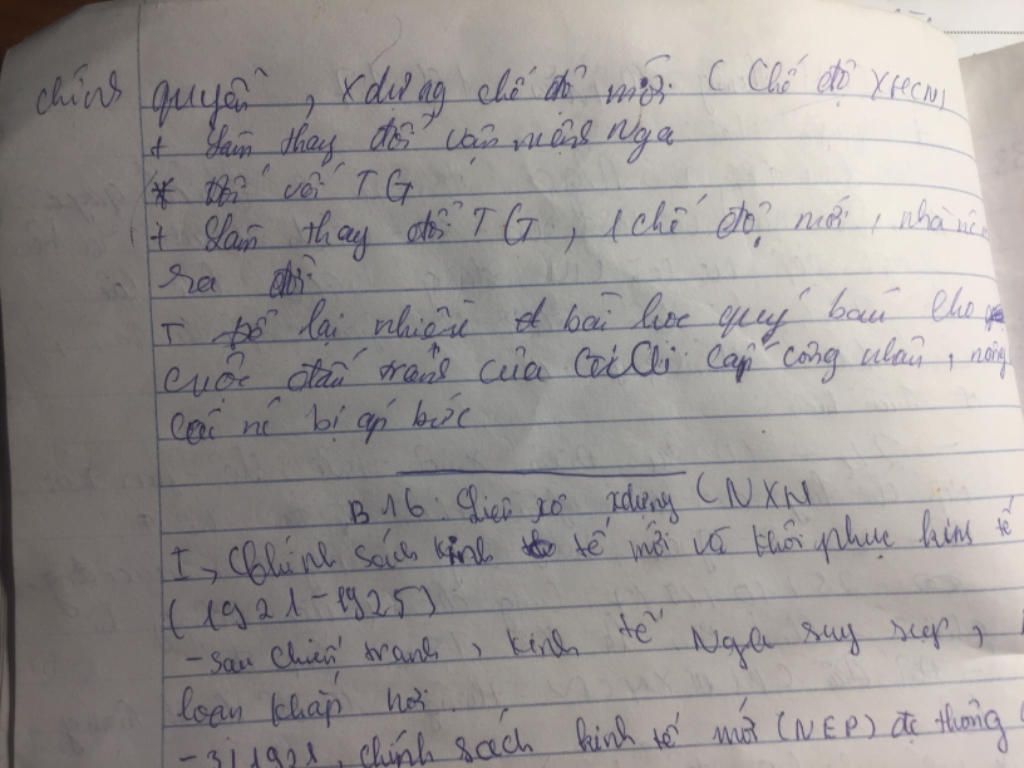 chính quyền, xdựng chế độ mới (Chế độ XHCN)
+ Làm thay đổi vận mệnh Nga
* đối với TG
+ Làm thay đổi TG, 1 chế độ mới, nhà nc
ra đời
+ để lại nhiều bài học quý báu cho
cuộc đấu tranh của giai cấp công nhân, nông
các nc bị áp bức
B16: Liên xô xdựng CNXH
I, Chính sách kinh tế mới và khôi phục kinh tế
(1921-1925)
- sau chiến tranh, kinh tế Nga suy sụp,
loạn khắp nơi.
- 3/1921, chính sách kinh tế mới (NEP) đc thông